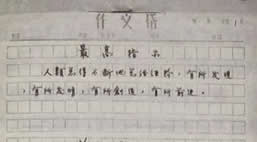 最高指示
人类总得不断地总结经验，有所发现
，有所发明，有所创造，有所前进。